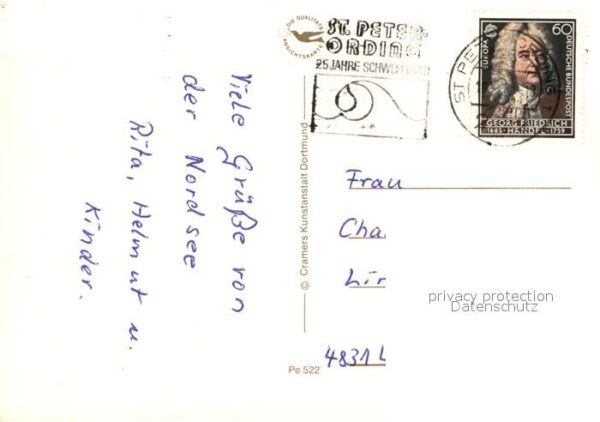 Viele Grüße von
der Nordsee
Rita, Helmut u.
Kinder.
DIE QUALITÄTS
ANSICHTSKARTE
© Cramers Kunstanstalt Dortmund
Pe 522
ST. PETER-
ORDING
25 JAHRE
ST PE
DING
60
EUROPA
DEUTSCHE BUNDESPOST
GEORG FRIEDRICH
1685 · HÄNDEL · 1759
Frau
Cha
Lir
4831 L
privacy protection
Datenschutz